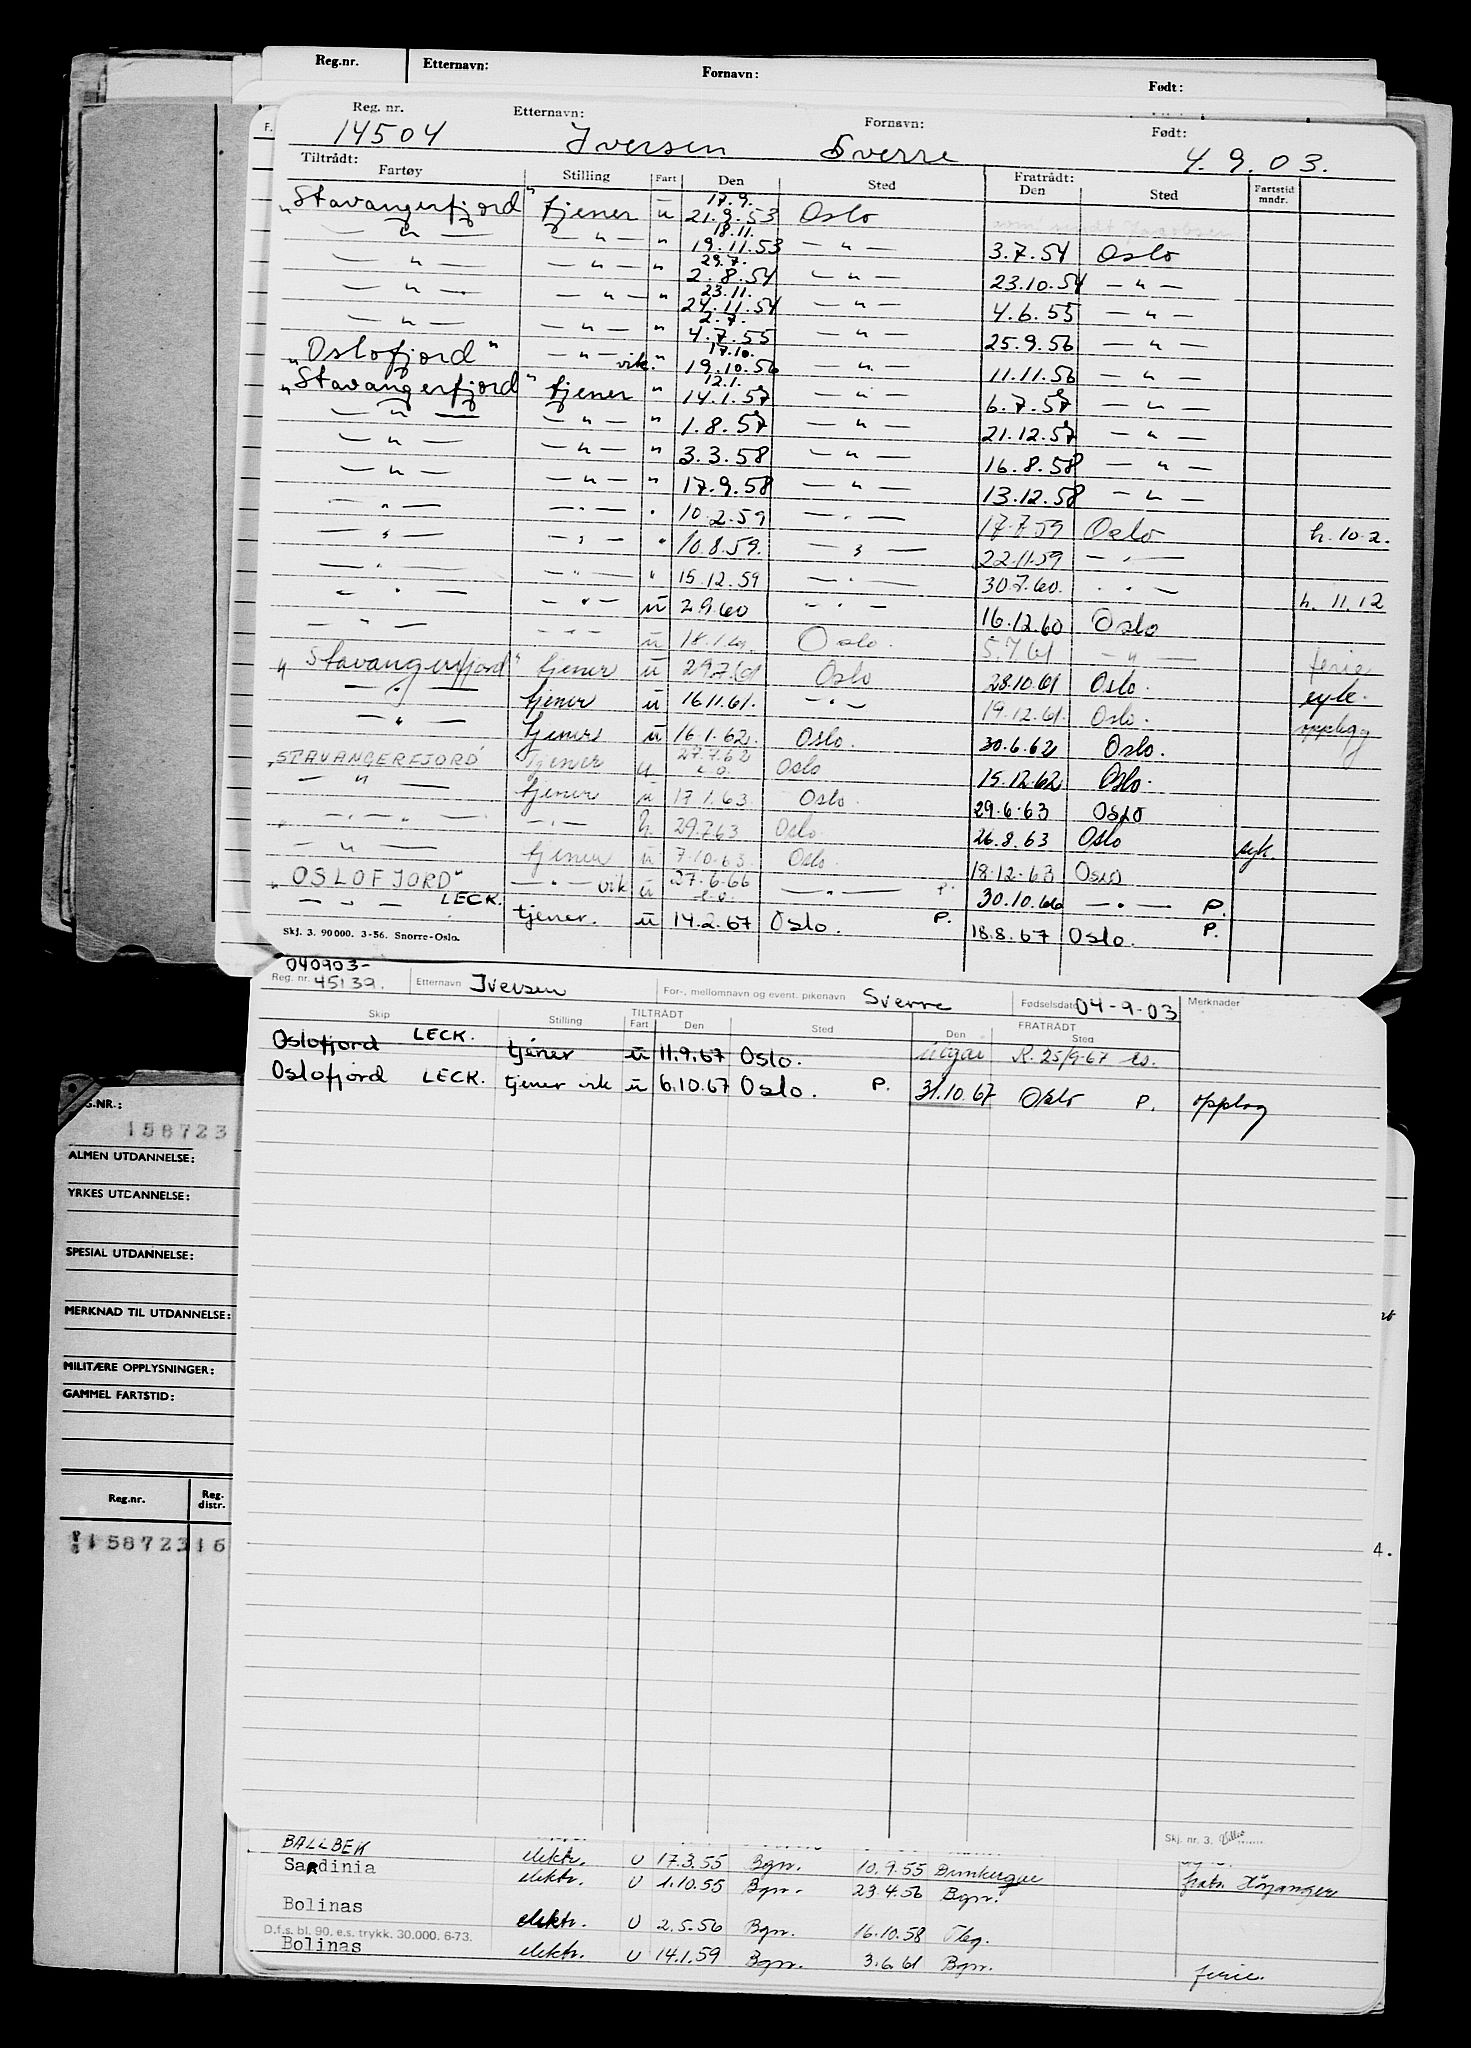 Reg.nr. Etternavn: Fornavn: Født:
Reg. nr. Etternavn: Fornavn: Født:
14504 Iversen Sverre 4.9.03.
Tiltrådt: Fratrådt:
Fartøy Stilling Fart Den Sted Den Sted Fartstid mndr.
"Stavangerfjord" tjener ü 17.9. 21.9.53 Oslo
— " — — " — " 18.11. 19.11.53 — " — 3.7.54 Oslo
— " — — " — " 29.7. 2.8.54 — " — 23.10.54 — " —
— " — — " — " 23.11. 24.11.54 — " — 4.6.55 — " —
— " — — " — " 2.7. 4.7.55 — " — 25.9.56 — " —
"Oslofjord" — " — vik. " 17.10. 19.10.56 — " — 11.11.56 — " —
"Stavangerfjord" tjener " 12.1. 14.1.57 — " — 6.7.57 — " —
— " — — " — " 1.8.57 — " — 21.12.57 — " —
— " — — " — " 3.3.58 — " — 16.8.58 — " —
— " — — " — " 17.9.58 — " — 13.12.58 — " —
— " — — " — " 10.2.59 — " — 17.7.59 Oslo h. 10.2.
— " — — " — " 10.8.59. — " — 22.11.59 — " —
— " — — " — " 15.12.59 — " — 30.7.60. — " — h. 11.12
— " — — " — ü 2.9.60 — " — 16.12.60 Oslo
— " — — " — ü 18.1.61. Oslo. 5.7.61 — " — ferie
"Stavangerfjord" tjener ü 29.7.61 Oslo 28.10.61 Oslo. syk.
— " — tjener ü 16.11.61. — " — 19.12.61. Oslo. opplegg
— " — tjener ü 16.1.62. Oslo. 30.6.62 Oslo.
"STAVANGERFJORD" tjener u 27.7.62 Oslo 15.12.62 Oslo.
— " — tjener u 17.1.63. Oslo. 29.6.63 Oslo
— " — — " — h. 29.7.63 Oslo 26.8.63 Oslo syk.
— " — tjener ü 7.10.63. Oslo. 18.12.63 Oslo
"OSLOFJORD" — " — vik ü 27.6.66 — " — P. 30.10.66 — " — P.
— " — LECK. tjener. ü 14.2.67 Oslo. P. 18.8.67 Oslo. P.
Skj. 3. 90000. 3-56. Snorre-Oslo.
040903-
Reg. nr. 45139. Etternavn Iversen For-, mellomnavn og event. pikenavn Sverre Fødselsdato 04-9-03 Merknader
TILTRÅDT FRATRÅDT
Skip Stilling Fart Den Sted Den Sted
Oslofjord LECK. tjener ü 11.9.67 Oslo. R. 25/9-67
Oslofjord LECK. tjener vik ü 6.10.67 Oslo. P. 31.10.67 Oslo P. opplag
G.NR.:
158723
ALMEN UTDANNELSE:
YRKES UTDANNELSE:
SPESIAL UTDANNELSE:
MERKNAD TIL UTDANNELSE:
MILITÆRE OPPLYSNINGER:
GAMMEL FARTSTID:
Reg.nr. Reg. distr.
158723 16
4.
Skj. nr. 3.
BALLBEK elektr. U 17.3.55 Bgn. 10.9.55 Dunkerque
Sardinia elektr. U 1.10.55 Bgn. 23.4.56 Bgn. fratr. Høyanger
Bolinas elektr. U 2.5.56 Bgn. 16.10.58
D.f.s. bl. 90. e.s. trykk. 30.000. 6-73.
Bolinas elektr. U 14.1.59 Bgn. 3.6.61 Bgn. ferie.